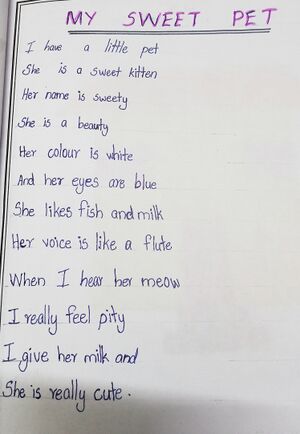 MY SWEET PET
I have a little pet
She is a sweet kitten
Her name is sweety
She is a beauty
Her colour is white
And her eyes are blue
She likes fish and milk
Her voice is like a flute
When I hear her meow
I really feel pity
I give her milk and
She is really cute.